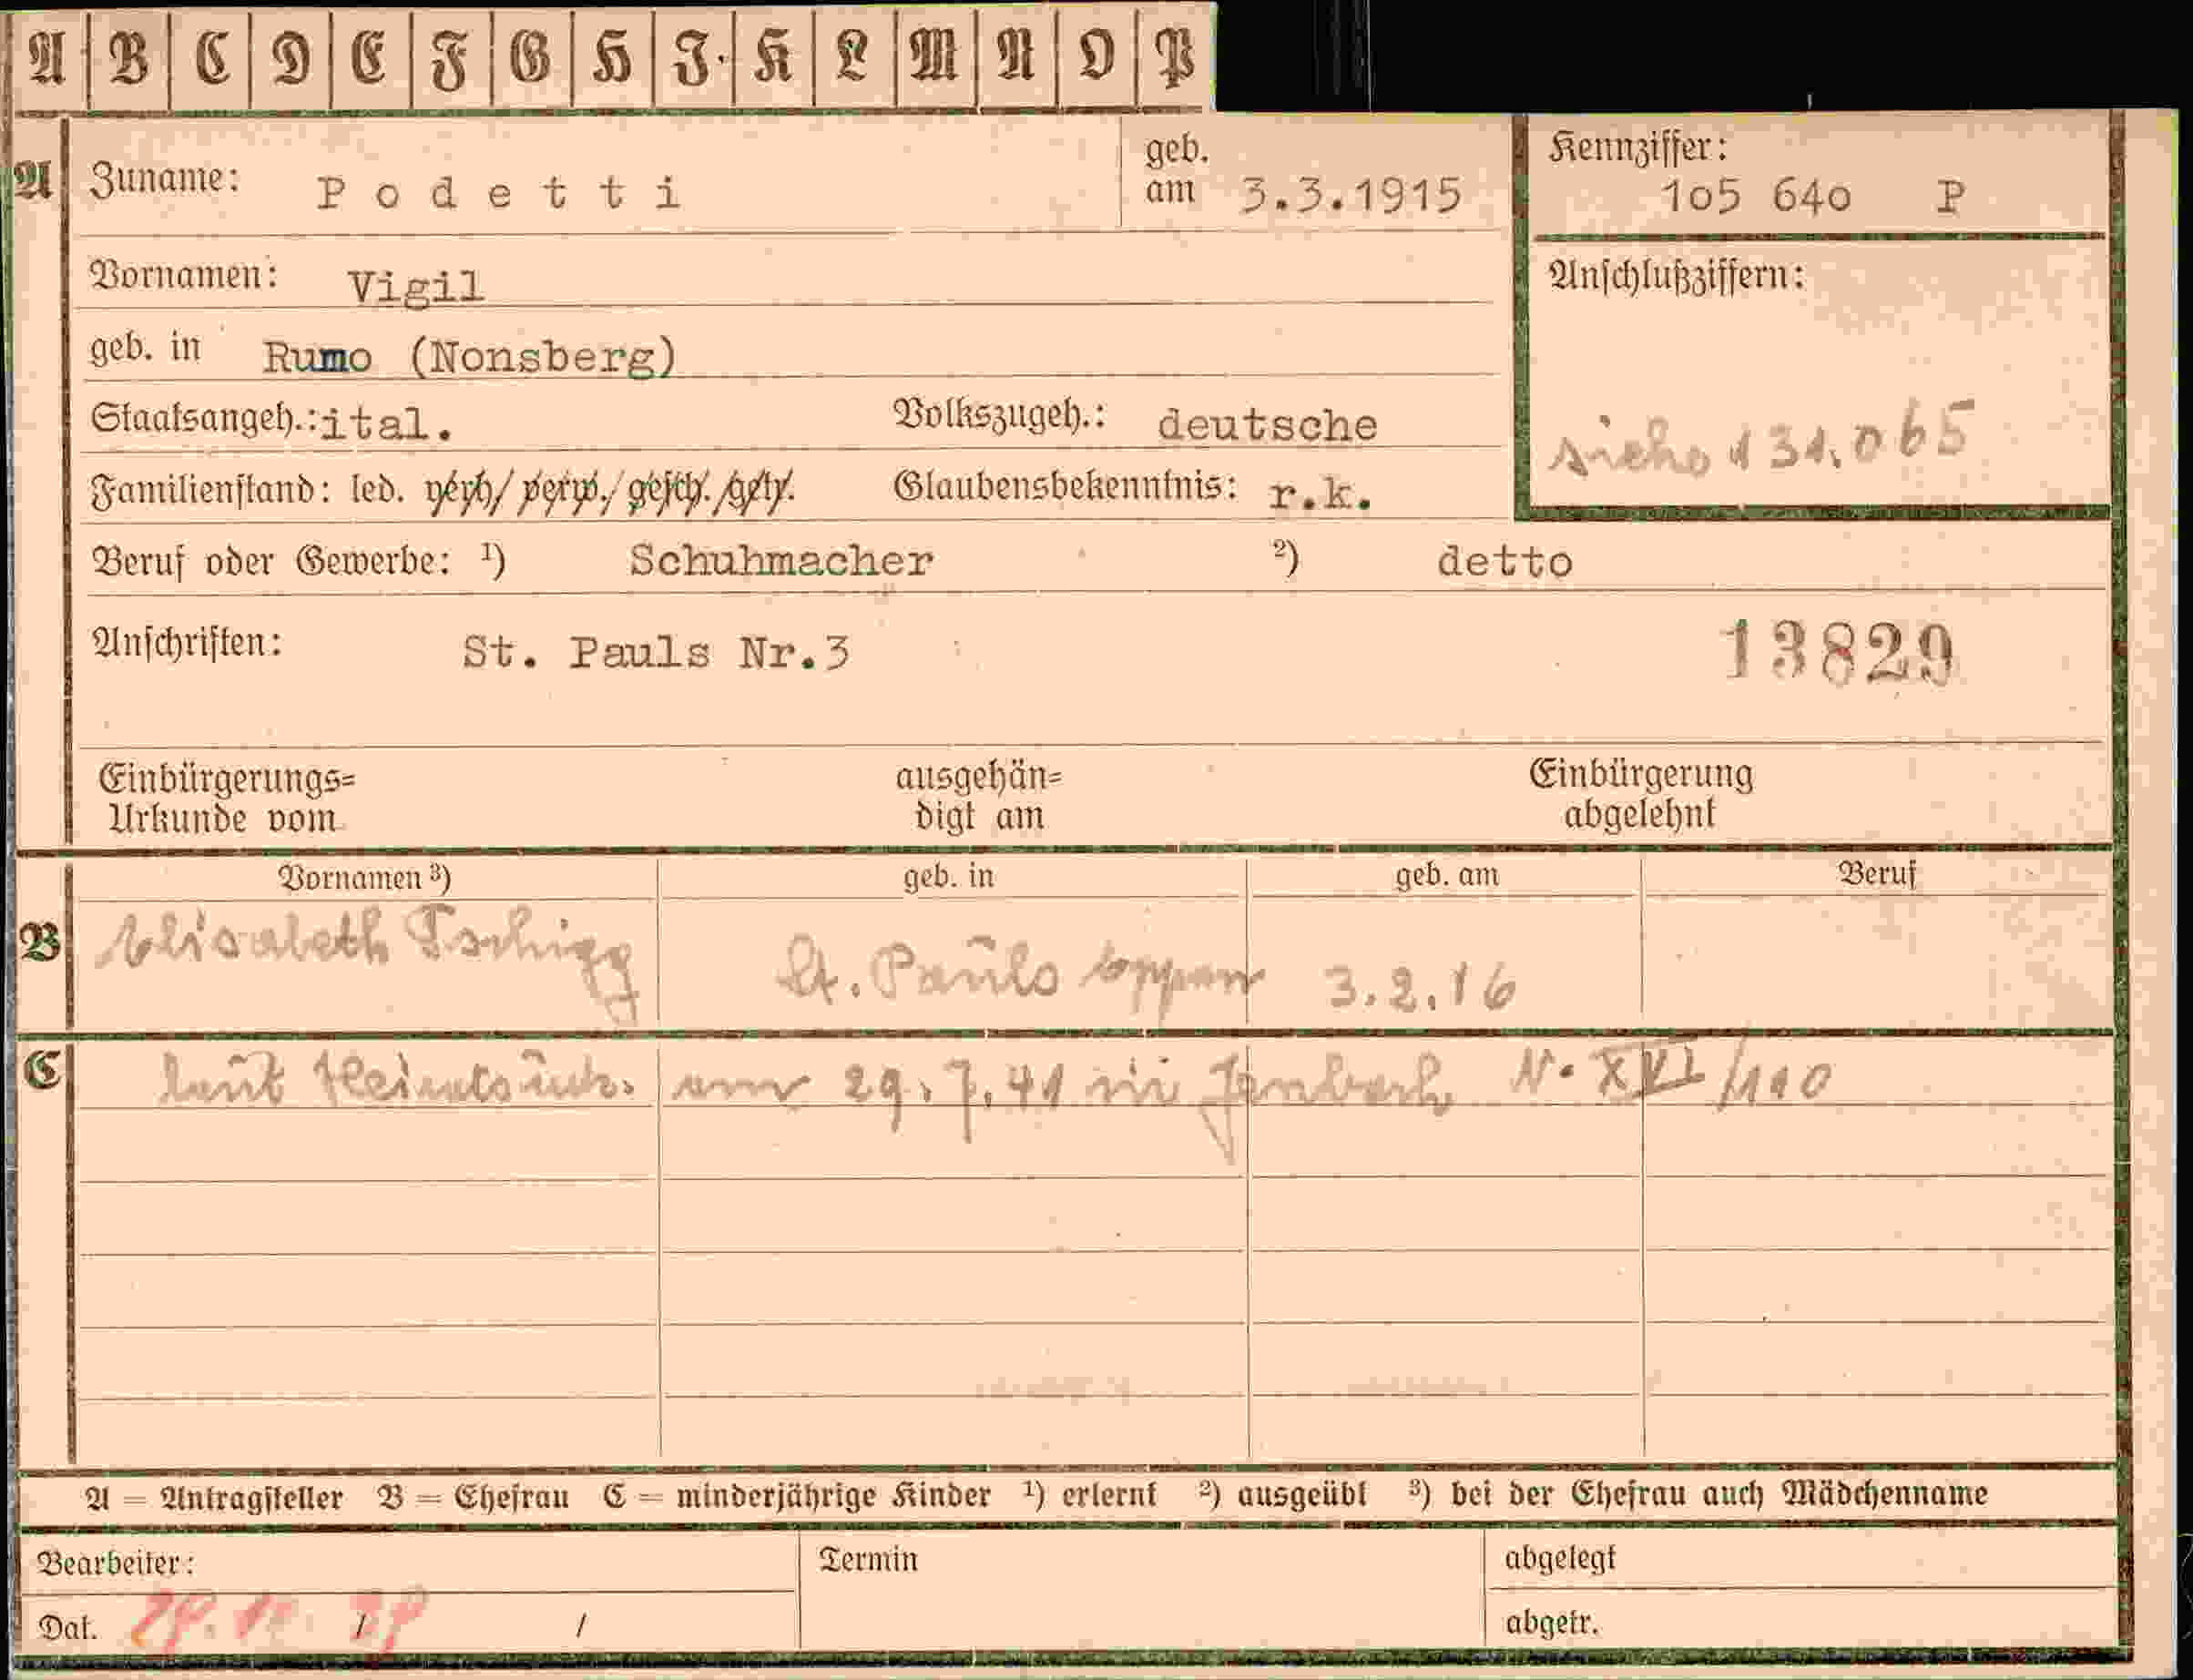 A B C D E F G H J. K L M N O P
A Zuname: Podetti geb. am 3.3.1915 Kennziffer: 105 640 P
Vornamen: Vigil Anschlußziffern:
geb. in Rumo (Nonsberg)
Staatsangeh.: ital. Volkszugeh.: deutsche siehe 131.065
Familienstand: led. verh/ verw./ gesch./getr. Glaubensbekenntnis: r.k.
Beruf oder Gewerbe: ¹) Schuhmacher ²) detto
Anschriften: St. Pauls Nr.3 13829
Einbürgerungs= ausgehän= Einbürgerung
Urkunde vom digt am abgelehnt
Vornamen ³) geb. in geb. am Beruf
B Elisabeth Tschigg St. Pauls Eppan 3.2.16
C laut Heiratsurk. am 29.7.41 in Jenbach N. XVI/110
A = Antragsteller B = Ehefrau C = minderjährige Kinder ¹) erlernt ²) ausgeübt ³) bei der Ehefrau auch Mädchenname
Bearbeiter: Termin abgelegt
Dat. / / abgetr.